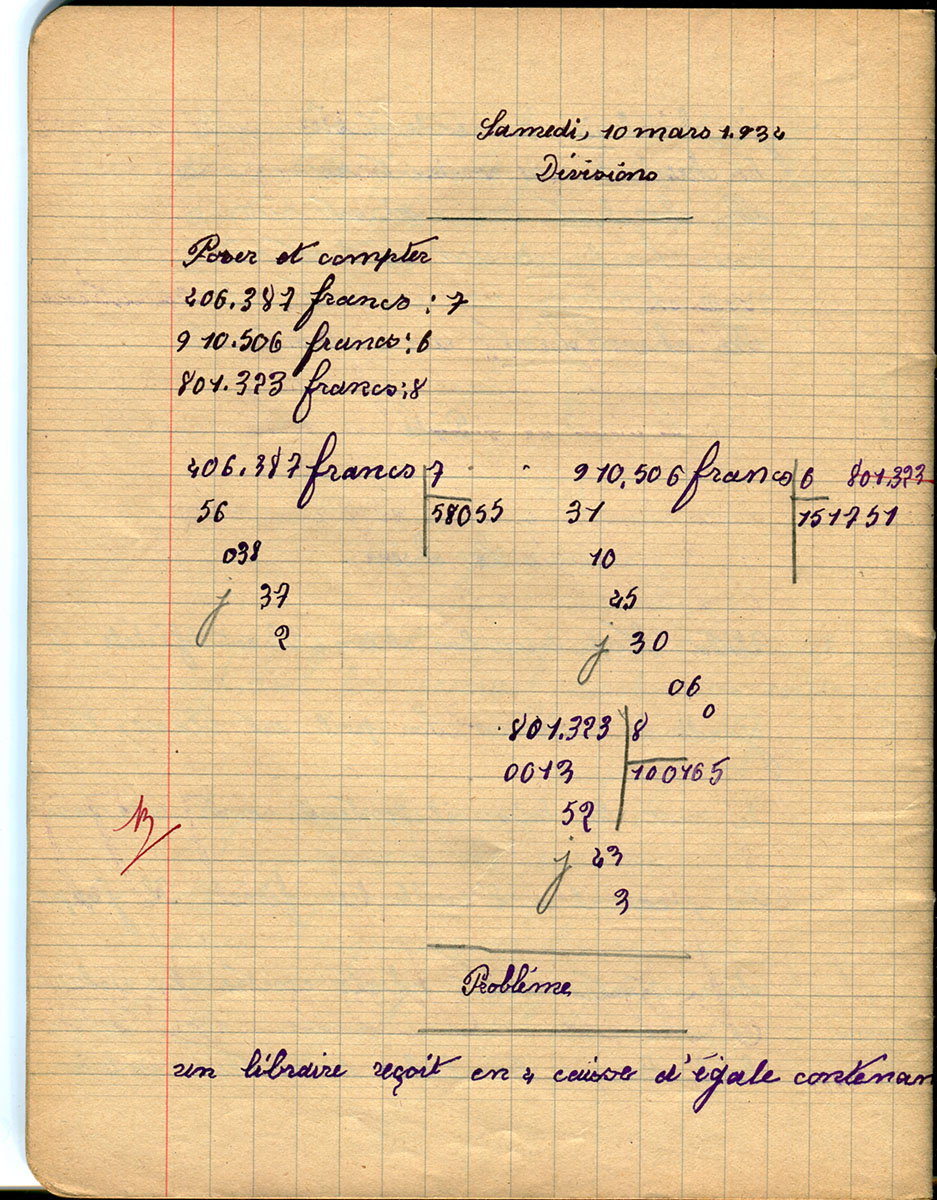 Samedi, 10 mars 1.934
Divisions
Poser et compter
406.387 francs : 7
910.506 francs : 6
801.323 francs : 8
406.387 francs 7 910,506 francs 6 801.323
56 58055 31 151751
038 10
j 37 45
2 j 30
06
0
801.323 8
0013 100165
52
B
j 43
3
Problème
un libraire reçoit en 4 caisses d'égale contenan